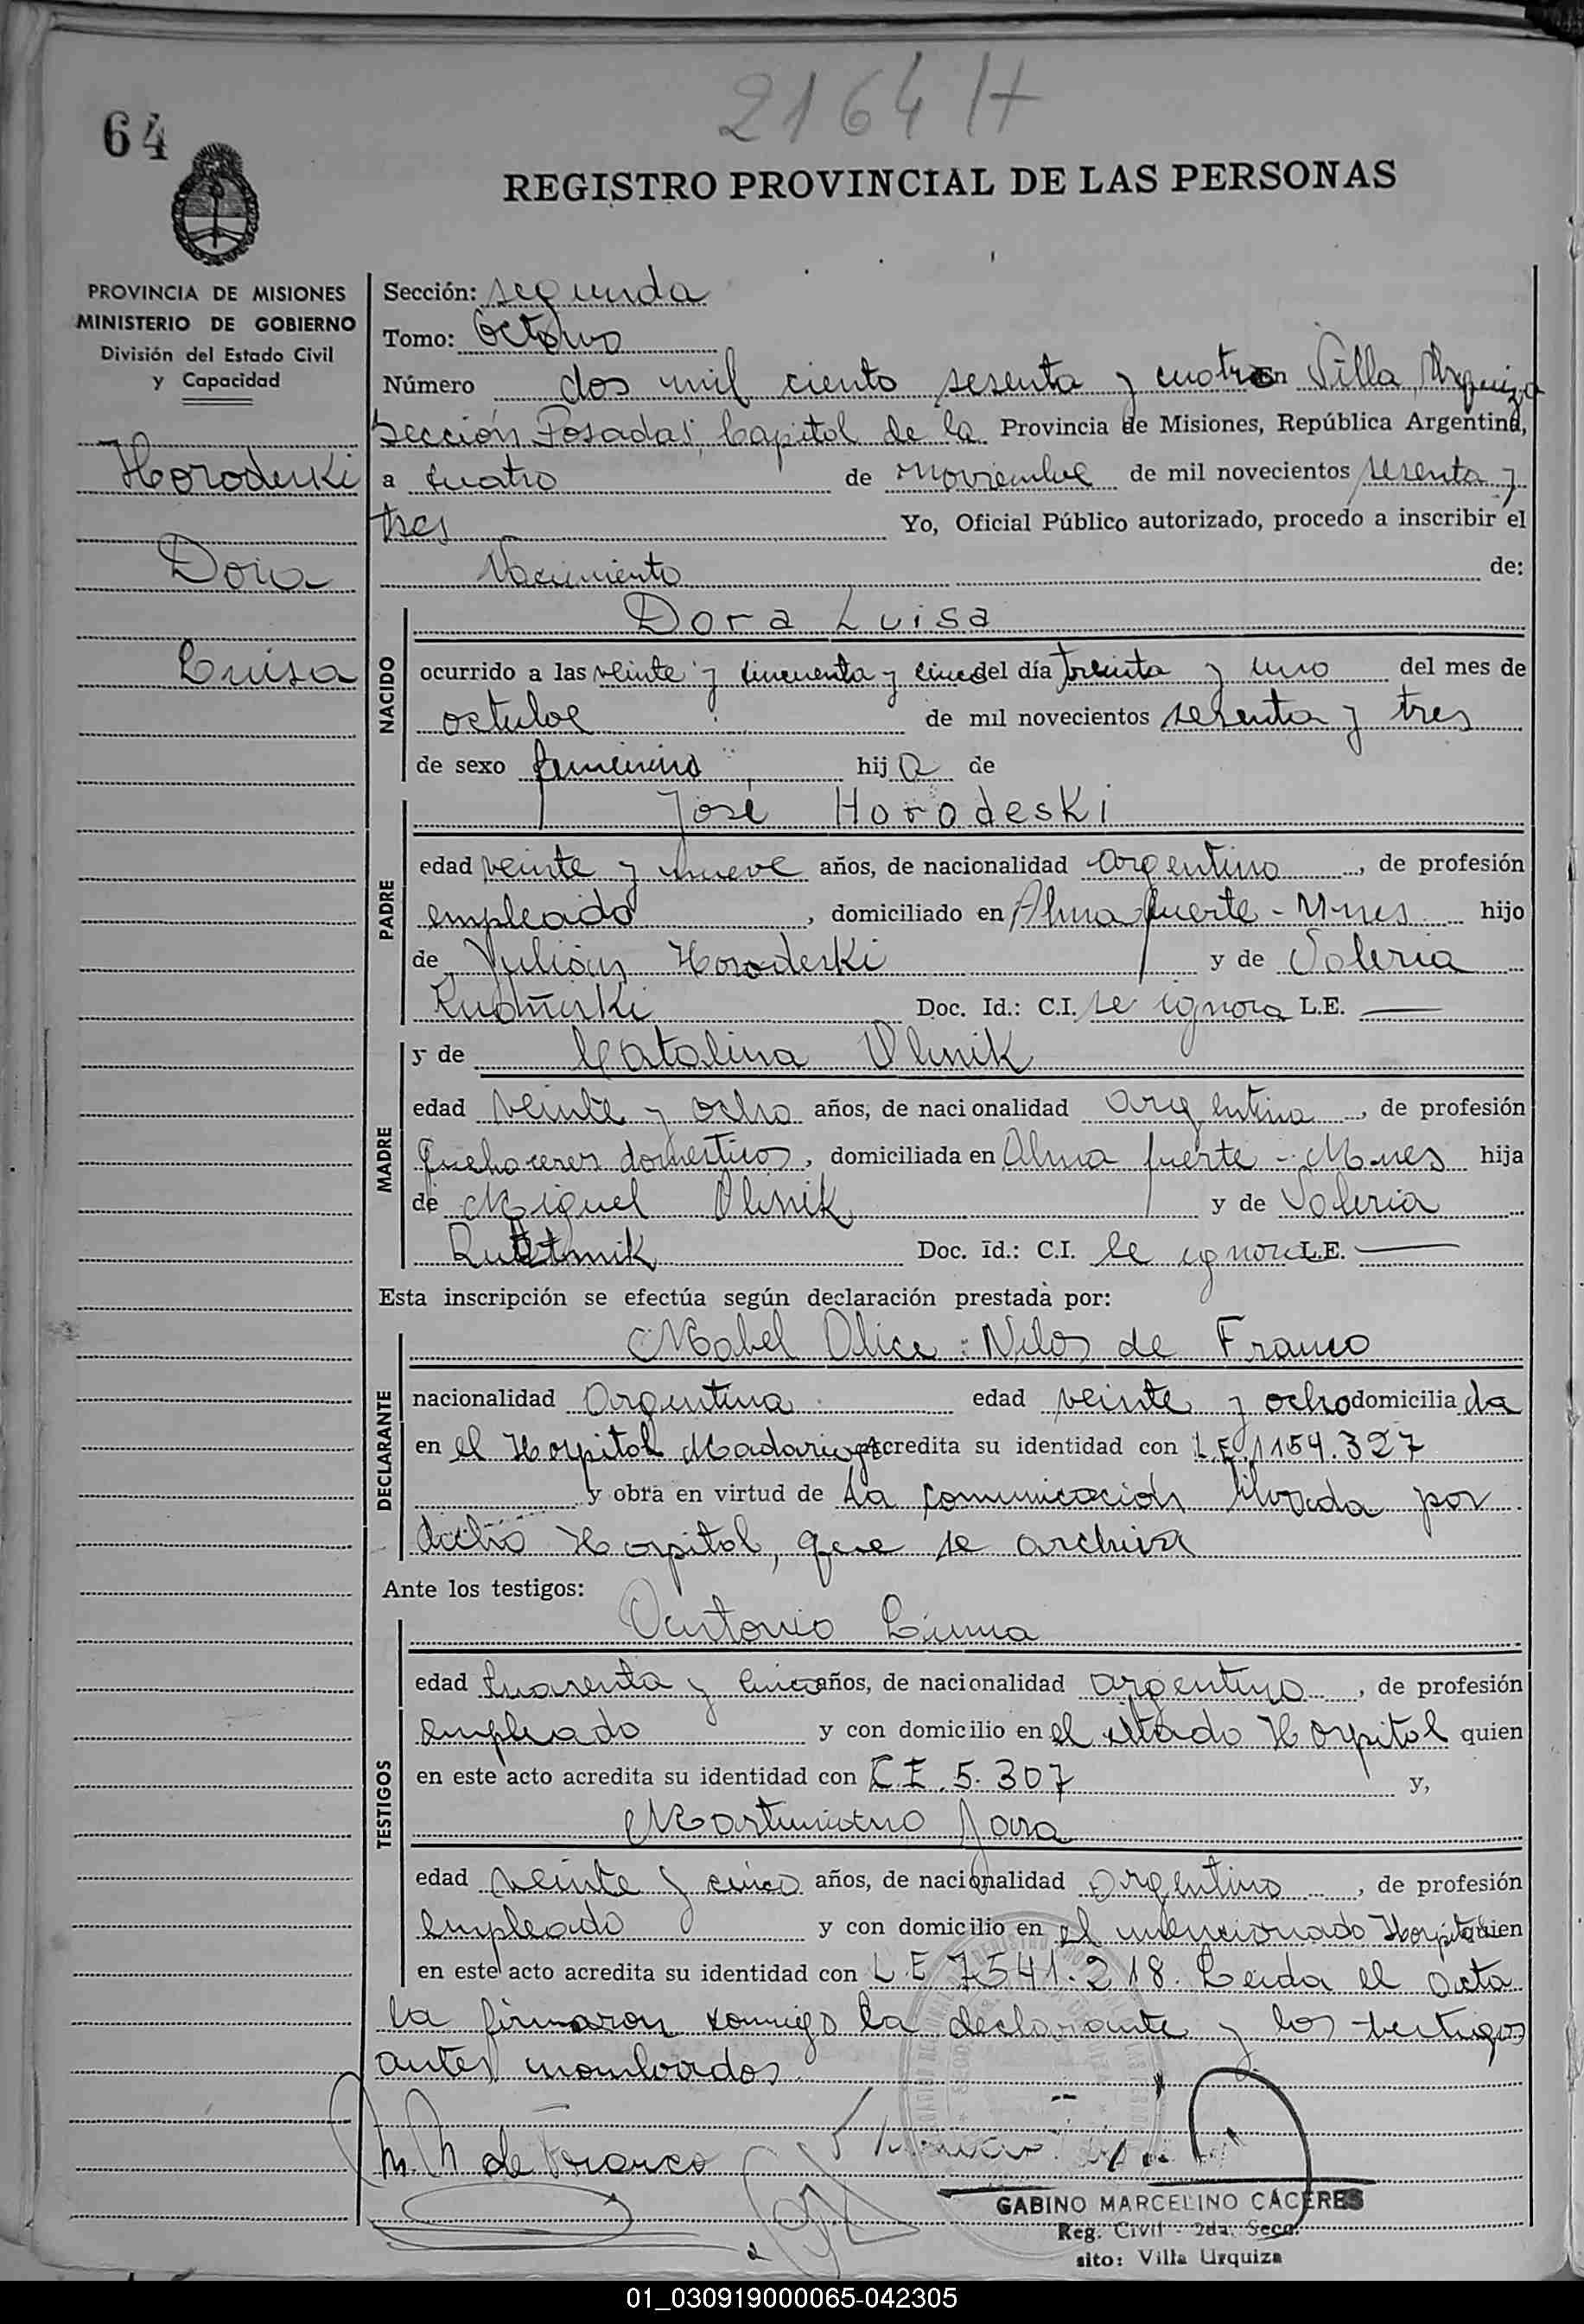 2164 H
64
REGISTRO PROVINCIAL DE LAS PERSONAS
PROVINCIA DE MISIONES
MINISTERIO DE GOBIERNO
División del Estado Civil
y Capacidad
Horodeski
Dora
Luisa
Sección: segunda
Tomo: Octavo
Número dos mil ciento sesenta y cuatro en Villa Urquiza
Sección Posadas, Capital de la Provincia de Misiones, República Argentina,
a cuatro de Noviembre de mil novecientos sesenta y
tres Yo, Oficial Público autorizado, procedo a inscribir el
Nacimiento de:
NACIDO
Dora Luisa
ocurrido a las veinte y cincuenta y cinco del día treinta y uno del mes de
octubre de mil novecientos sesenta y tres
de sexo femenino hija de
PADRE
José Horodeski
edad veinte y nueve años, de nacionalidad argentino, de profesión
empleado, domiciliado en Alma fuerte - Mnes hijo
de Julián Horodeski y de Valeria
Doc. Id.: C.I. se ignora L.E. —
MADRE
y de Catalina Olinik
edad veinte y ocho años, de nacionalidad argentina, de profesión
quehaceres domesticos, domiciliada en Alma fuerte - Mnes hija
de Miguel Olinik y de Valeria
Doc. Id.: C.I. se ignora L.E. —
Esta inscripción se efectúa según declaración prestada por:
DECLARANTE
Mabel Alice Nilos de Franco
nacionalidad Argentina edad veinte y ocho domiciliada
en el Hospital Madariaga acredita su identidad con L.E. 1154.327
y obra en virtud de la comunicación librada por
dicho Hospital, que se archiva
Ante los testigos:
TESTIGOS
Antonio Lima
edad cuarenta y cinco años, de nacionalidad argentino, de profesión
empleado y con domicilio en el citado Hospital quien
en este acto acredita su identidad con C.I. 5.307 y,
Martiniano Jara
edad veinte y cinco años, de nacionalidad argentino, de profesión
empleado y con domicilio en el mencionado Hospital quien
en este acto acredita su identidad con L.E 7541.218. Leida el acta
la firmaron conmigo la declarante y los testigos
antes nombrados.
M. N de Franco
GABINO MARCELINO CÁCERES
Reg. Civil - 2da. Secc.
sito: Villa Urquiza
01_030919000065-042305